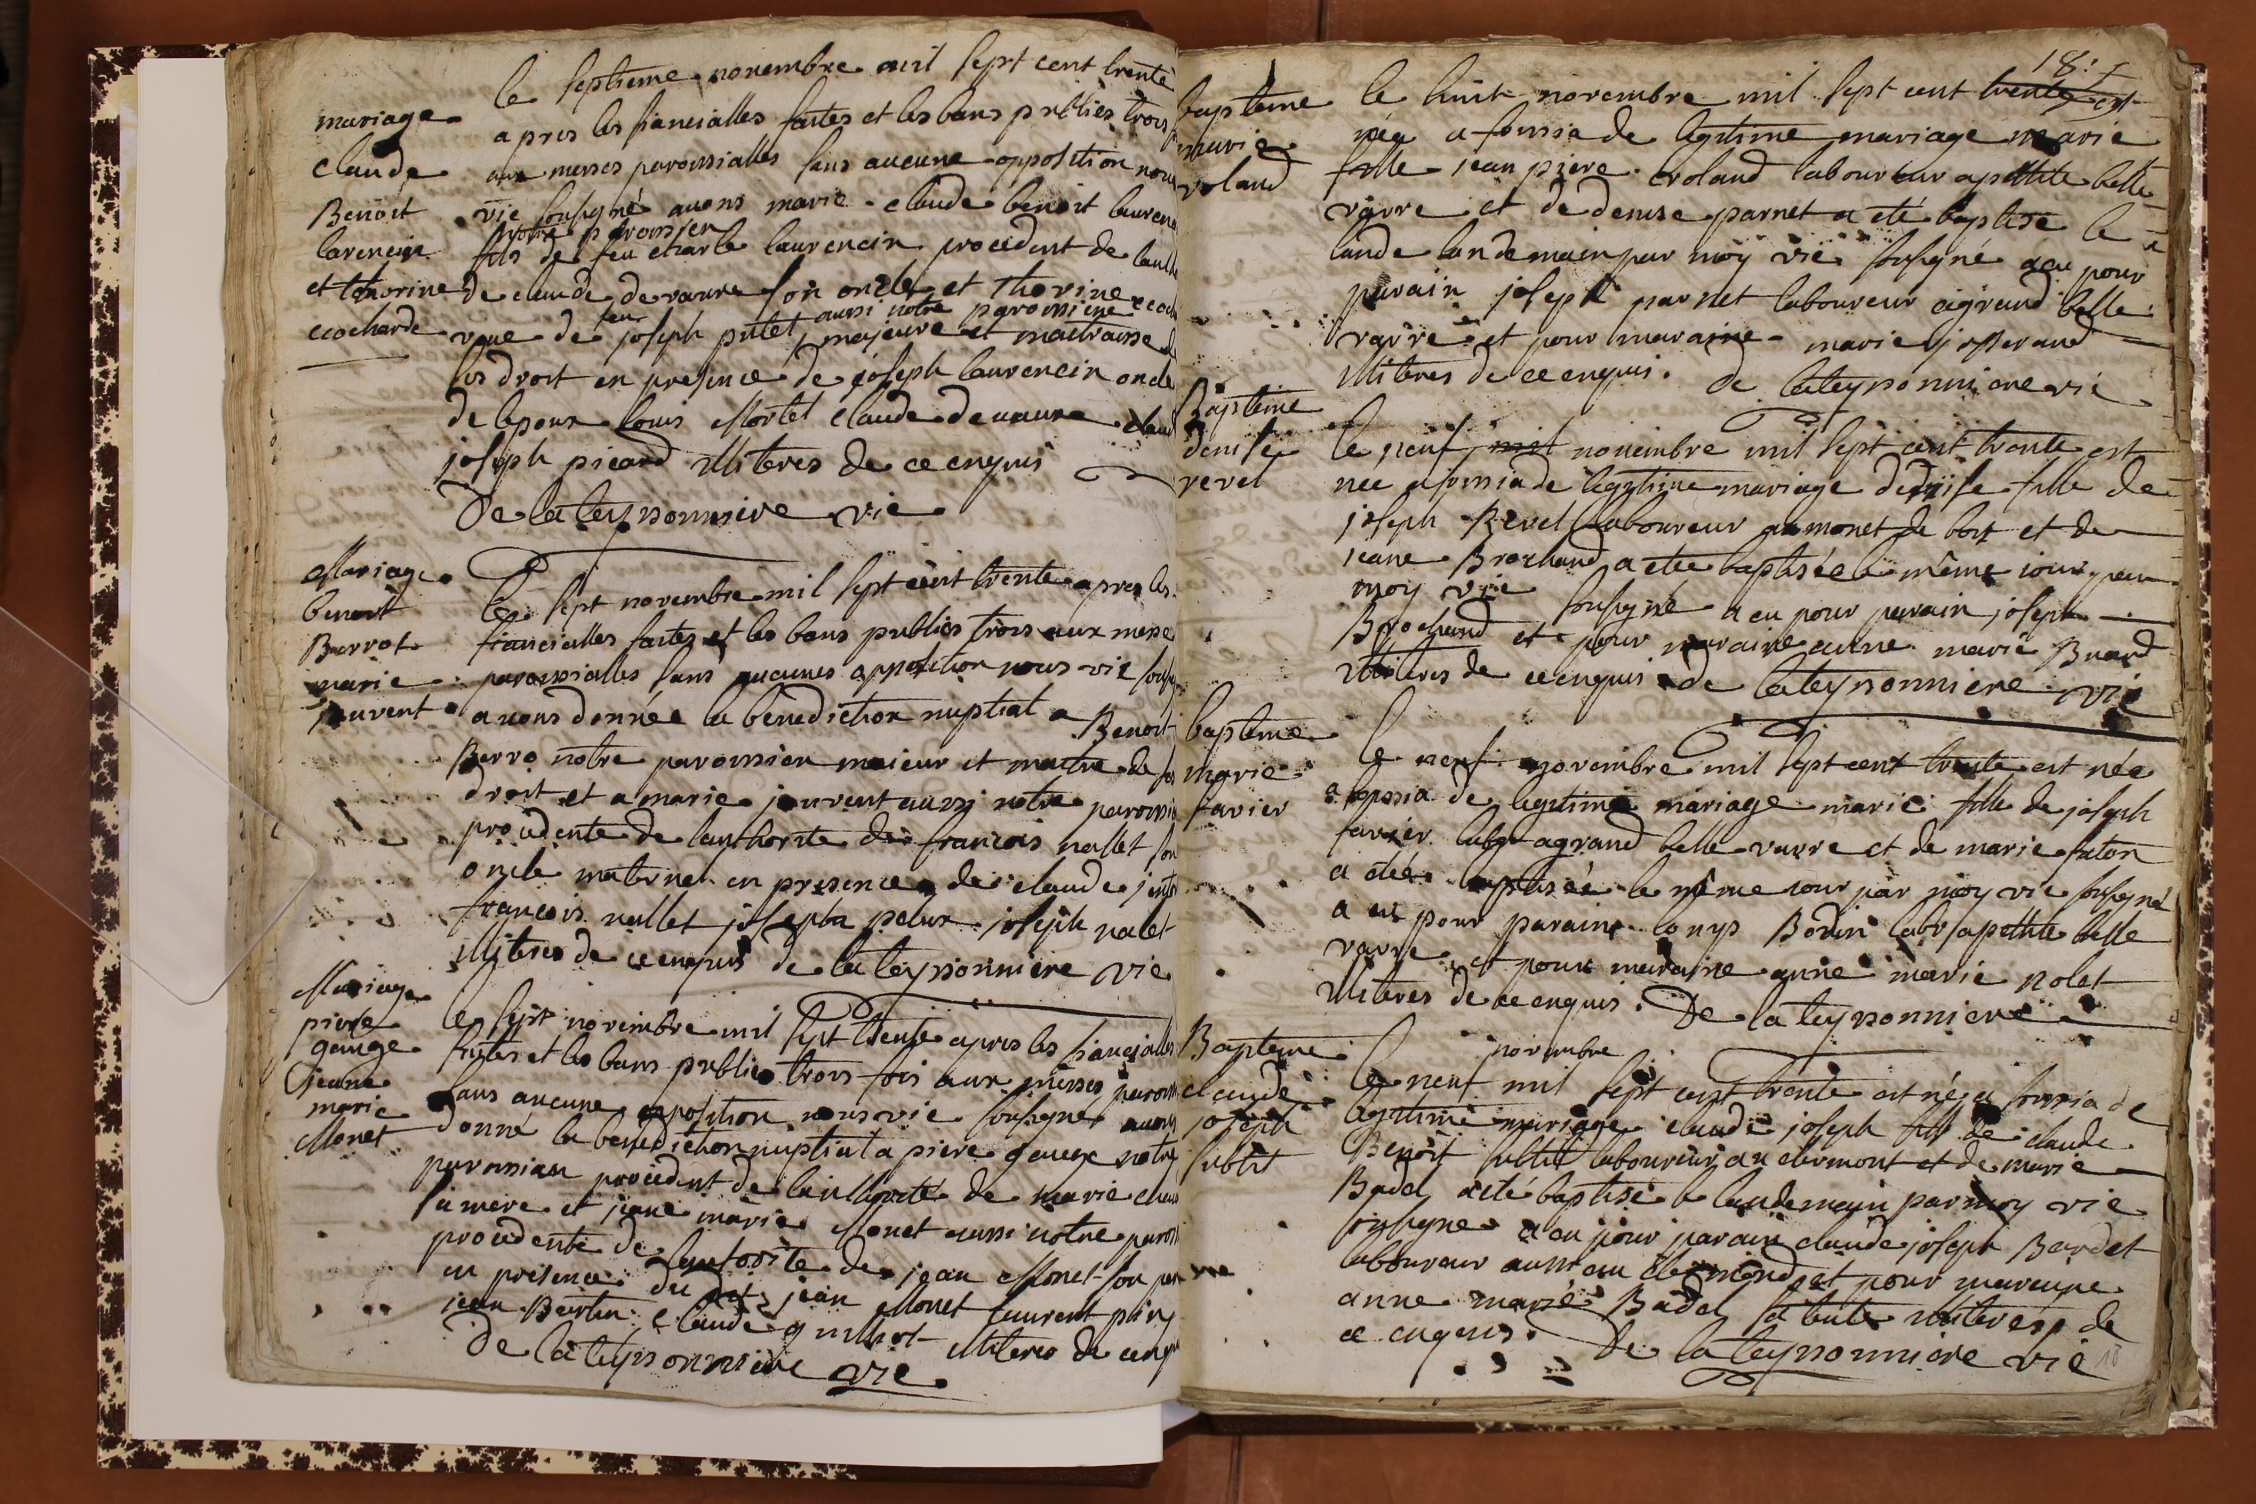 mariage
claude
Benoit
larencin
et thorine
ecocharde
le septieme novembre mil sept cent trente
apres les fiancialles faites et les bans publiés trois
aux messes paroissialles sans aucune opposition nous
vie sousigné avons marié claude benoit laurencin
notre paroissien
fils de feu charle laurencin procedent de
de claude devavre son oncle et thorine
feu aussi notre paroissiene
veve de joseph pitet majeure et maitraisse de
ses droit en presence de joseph laurencin oncle
de lepoux louis Mortel claude devavre
joseph picard illiteres de ce enquis
De lateyssonniere vie
Mariage
benoit
Berrot
marie
jouvent
le sept novembre mil sept cent trente apres les
fiancialles faites et les bans publiés trois aux messe
paroissialles sans aucunes opposition nous vie
avons donnée la benediction nuptial a Benoit
Berro notre paroissien majeur et maitre de ses
droit et a marie jouvent aussi notre
procedente de lauthorite de francois nallet son
oncle maternel en presence de claude
francois nallet joseph pelux joseph nalet
illiteres de ce enquis de lateyssonniere vie
Mariage
piere
gauge
jeane
marie
Monet
le sept novembre mil sept trente apres les fiancialles
faites et les bans publiés trois fois aux messes
sans aucune opposition nous vie sousigné avons
donné la benediction nuptial a piere gauge notre
paroissien procedent de lauthorité de marie
sa mere et jeane marie Monet aussi notre
procedente de lautorite de jean Monet son pere
en presence du dit jean Monet laurent
jean Bertin claude guillot illiteres de
De lateyssonniere vie
18
bapteme
marie
roland
le huit novembre mil sept cent trente est
née a fornia de legitime mariage marie
fille jean piere roland laboureur a petite belle
vavre et de denise parnet a eté baptisé le
lande landemain par moy vie sousigné a eu pour
parain joseph parnet laboureur a grand belle
vavre et pour maraine marie josserand
illiteres de ce enquis. de lateyssonniere vie
Bapteme
denise
revel
le neuf mil novembre mil sept cent trente est
nee a fornia de legitime mariage denise fille de
joseph Revel laboureur au monet de bost et de
jeane Brochand a eté baptisée le même jour par
moy vie sousigné a eu pour parain joseph
Brochand et pour maraine anne marie Buard
illiteres de ce enquis de lateyssonniere vie
bapteme
marie
favier
le neuf novembre mil sept cent trente est née
a fornia de legitime mariage marie fille de joseph
favier labr a grand belle vavre et de marie
a eté baptisée le même jour par moy vie sousigné
a eu pour parain louys Bodin labr a petite belle
vavre et pour maraine anne marie nolet
illiteres de ce enquis. De lateyssonniere
Bapteme
claude
joseph
subtit
novembre
le neuf mil sept cent trente est né a fornia de
legitime mariage claude joseph fils de claude
Benoit subtil laboureur au clermont et de marie
Badel a eté baptisé le landemain par moy vie
sousigne a eu pour parain claude joseph Bardet
laboureur aussi au clermond et pour maraine
anne marie Badel sa tante illiteres de
ce enquis. De lateyssonniere vie
18